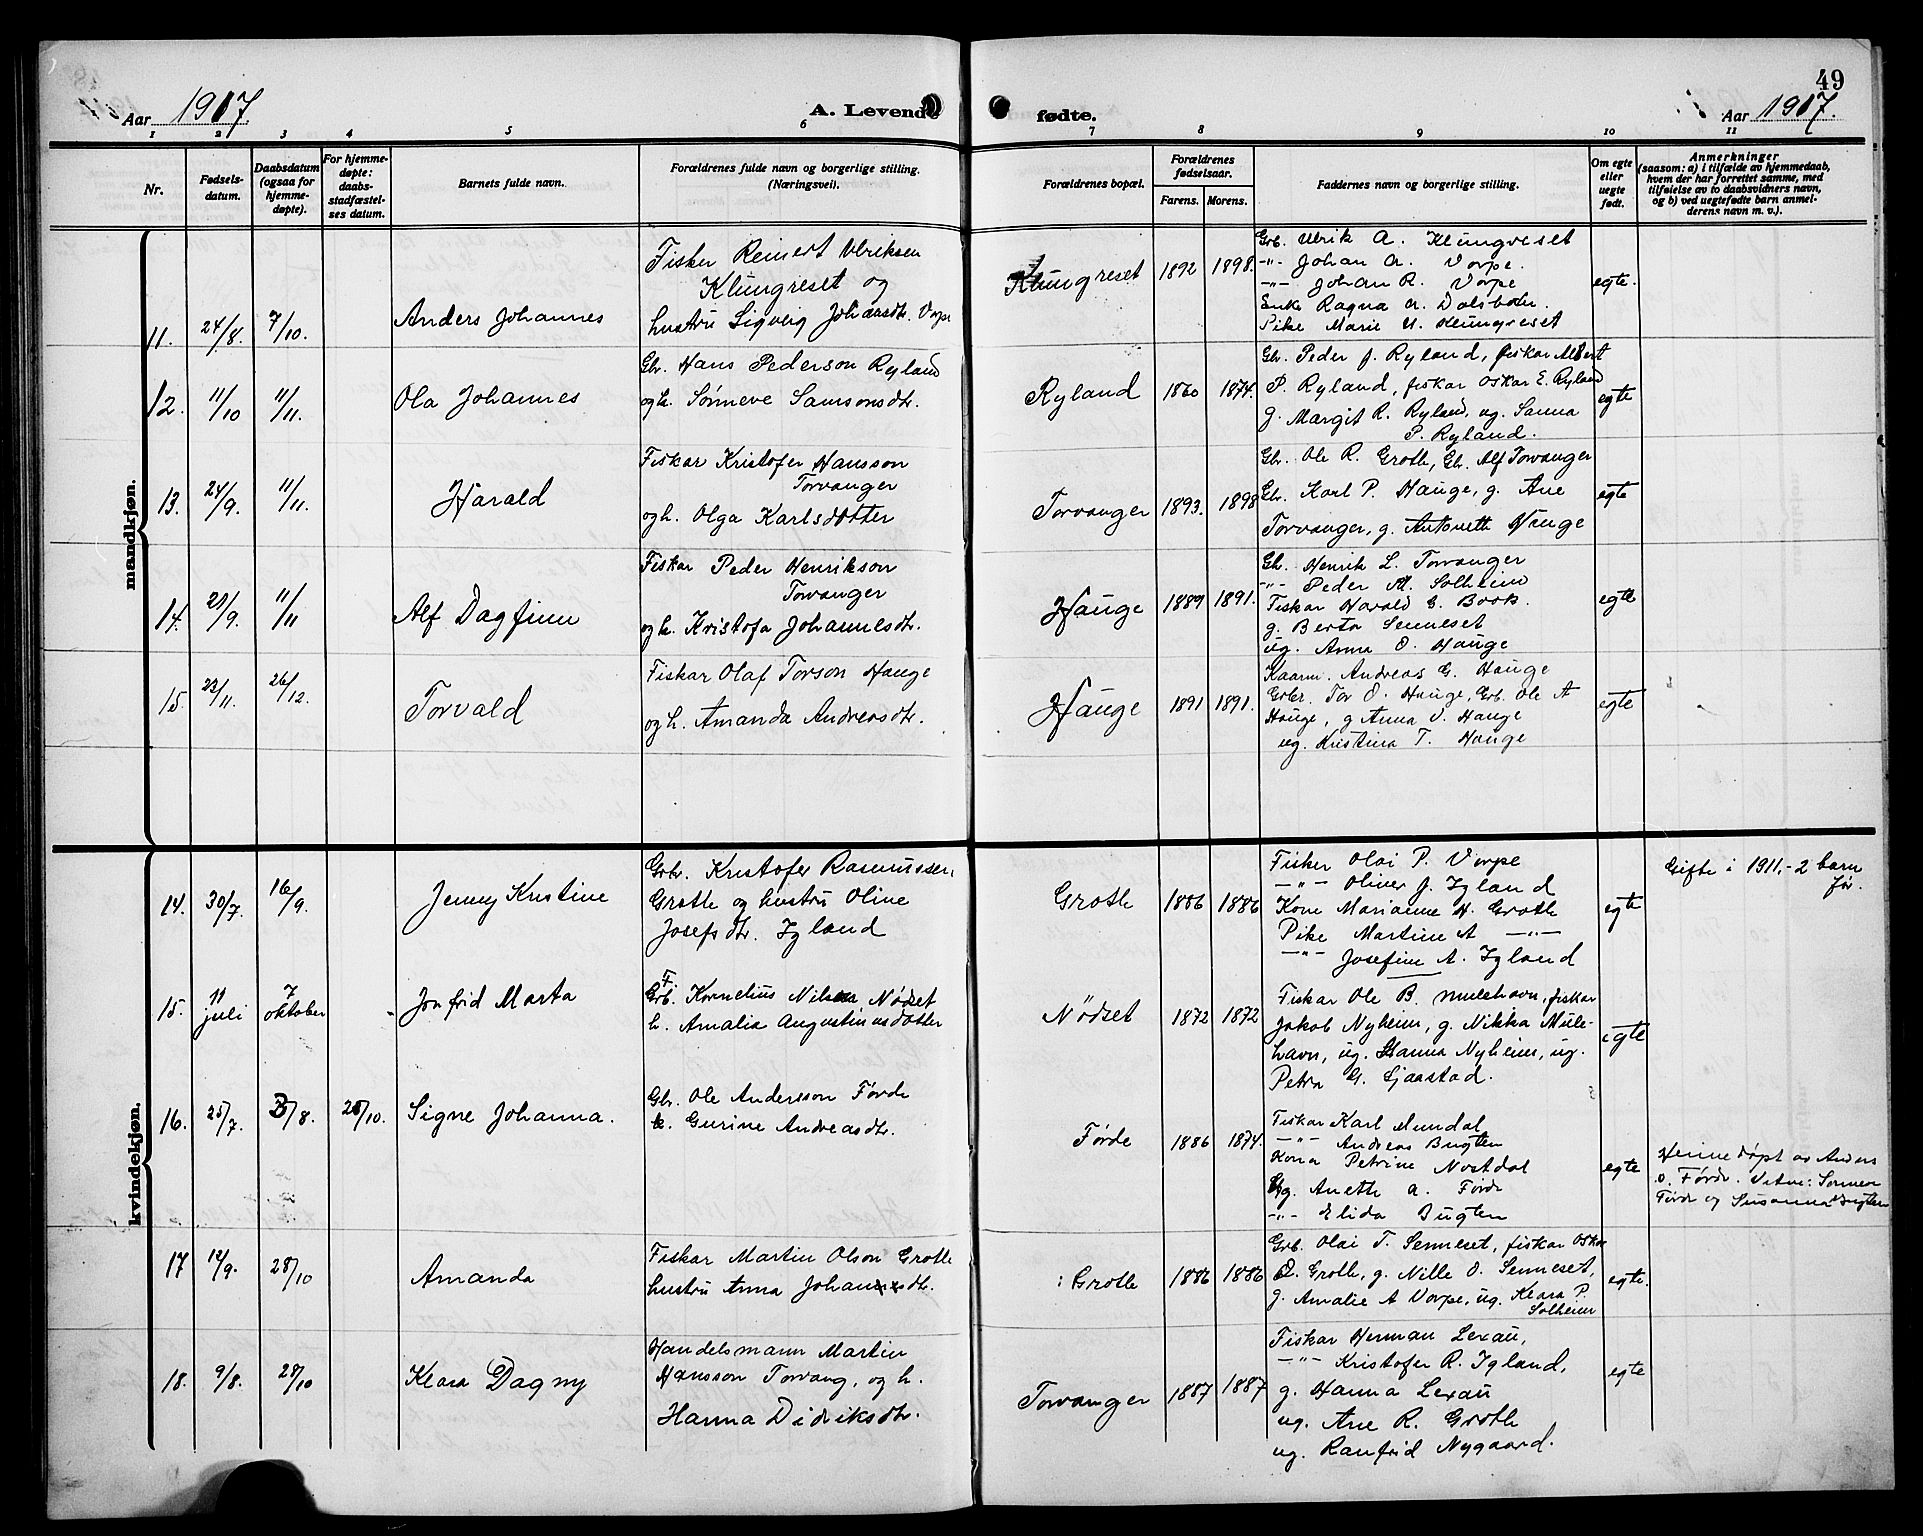 49
Aar 1917.
A. Levende
fødte.
Aar 1917.
1 2 3 4 5 6 7 8 9 10 11
Nr.
Fødsels-
datum.
Daabsdatum
(ogsaa for
hjemme-
døpte).
For hjemme-
døpte:
daabs-
stadfæstel-
ses datum.
Barnets fulde navn.
Forældrenes fulde navn og borgerlige stilling.
(Næringsvei).
Forældrenes bopæl.
Forældrenes
fødselsaar.
Farens. Morens.
Faddernes navn og borgerlige stilling.
Om egte
eller
uegte
født.
Anmerkninger
(saasom: a) i tilfælde av hjemmedaab,
hvem der har forrettet samme, med
tilføielse av to daabsvidners navn,
og b) ved uegtefødte barn anmel-
derens navn m. v.).
mandkjøn.
11. 24/8. 7/10. Anders Johannes
Fisker Reinert Ulriksen
Klungreset og
hustru Signeig Johansdtr. Vorpe
Klungreset 1892 1898.
Grb. Ulrik A. Klungreset
-"- Johan A. Vorpe.
-"- Johan R. Vorpe
Enke Ragna A. Dalsbotn.
Pike Marie U. Klungreset
egte.
12. 11/10 11/11. Ola Johannes
Gbr. Hans Pederson Ryland
og h. Sønneve Samsonsdtr.
Ryland 1860 1874.
Gbr. Peder J. Ryland, fiskar Albert
P. Ryland, fiskar Oskar E. Ryland
g. Margit R. Ryland, ug. Sanna
P. Ryland.
egte
13. 24/9. 11/11. Harald
Fiskar Kristofer Hansson
Torvanger
og h. Olga Karlsdotter
Torvanger 1893. 1898
Gbr. Ole R. Grotle, Gbr. Alf Torvanger
Gbr. Karl P. Hauge, g. Ane
Torvanger, g. Antonette Hauge
egte
14. 29/9. 11/11 Alf Dagfinn
Fiskar Peder Henrikson
Torvanger
og h. Kristofa Johannesdtr.
Hauge 1889 1891.
Gbr. Henrik L. Torvanger
-"- Peder M. Solheim
Fiskar Harald E. Book.
g. Berta Senneset
ug. Anna O. Hauge
egte
15. 22/11. 26/12. Torvald
Fiskar Olaf Torson Hauge
og h. Amanda Andreasdtr.
Hauge 1891 1891.
Kaarm. Andreas G. Hauge
Grbr. Tor O. Hauge, Grb. Ole A
Hauge, g Anna O. Hauge
ug. Kristina T. Hauge
egte
kvindekjøn.
14. 30/7. 16/9. Jenny Kristine
Grbr. Kristofer Rasmussen
Grotle og hustru Oline
Josefsdtr. Igland
Grotle 1886 1886
Fisker Olai P. Vorpe
-"- Oliver J. Igland
Kone Marianne H. Grotle
Pike Martine A -"-
-"- Josefine A. Igland
egte
Gifte i 1911,- 2 barn
før.
15. 11 juli 7 oktober Jonfrid Marta
F.
Grb. Kornelius Nilsen Nødset
h. Amalia Augustinusdotter
Nødset 1872 1872
Fiskar Ole B. Mulehavn, fiskar
Jakob Nyheim, g. Nikka Mule-
havn, ug. Hanna Nyheim, ug.
Petra G. Gjaastad.
egte
16. 25/7. 3/8. 28/10. Signe Johanna.
Gbr. Ole Andersson Førde
h. Gurine Andreasdtr.
Førde 1886 1874.
Fiskar Karl Mundal
-"- Andreas Bugten
Kona Petrine Nostdal
Ug. Anette A. Førde
-"- Elida Bugten
egte
Heimedøpt av Anders
O. Førde. Vitne: Sønneve
Førde og Susanna Bugten
17 12/9. 28/10 Amanda
Fiskar Martin Olson Grotle
hustru Anna Johansdtr.
Grotle 1886 1886
Grb. Olai T. Senneset, fiskar Oskar
O. Grotle, g. Nille O. Senneset,
g. Amalie A Vorpe, ug. Klara P.
Solheim
egte.
18. 9/8. 28/10 Klara Dagny
Handelsmann Martin
Hansson Torvang, og h.
Hanna Didriksdtr.
Torvanger 1887 1887
Fiskar Herman Lexau,
-"- Kristofer R. Igland,
g. Hanna Lexau
ug. Ane R. Grotle
ug. Ranfrid Nygaard.
egte